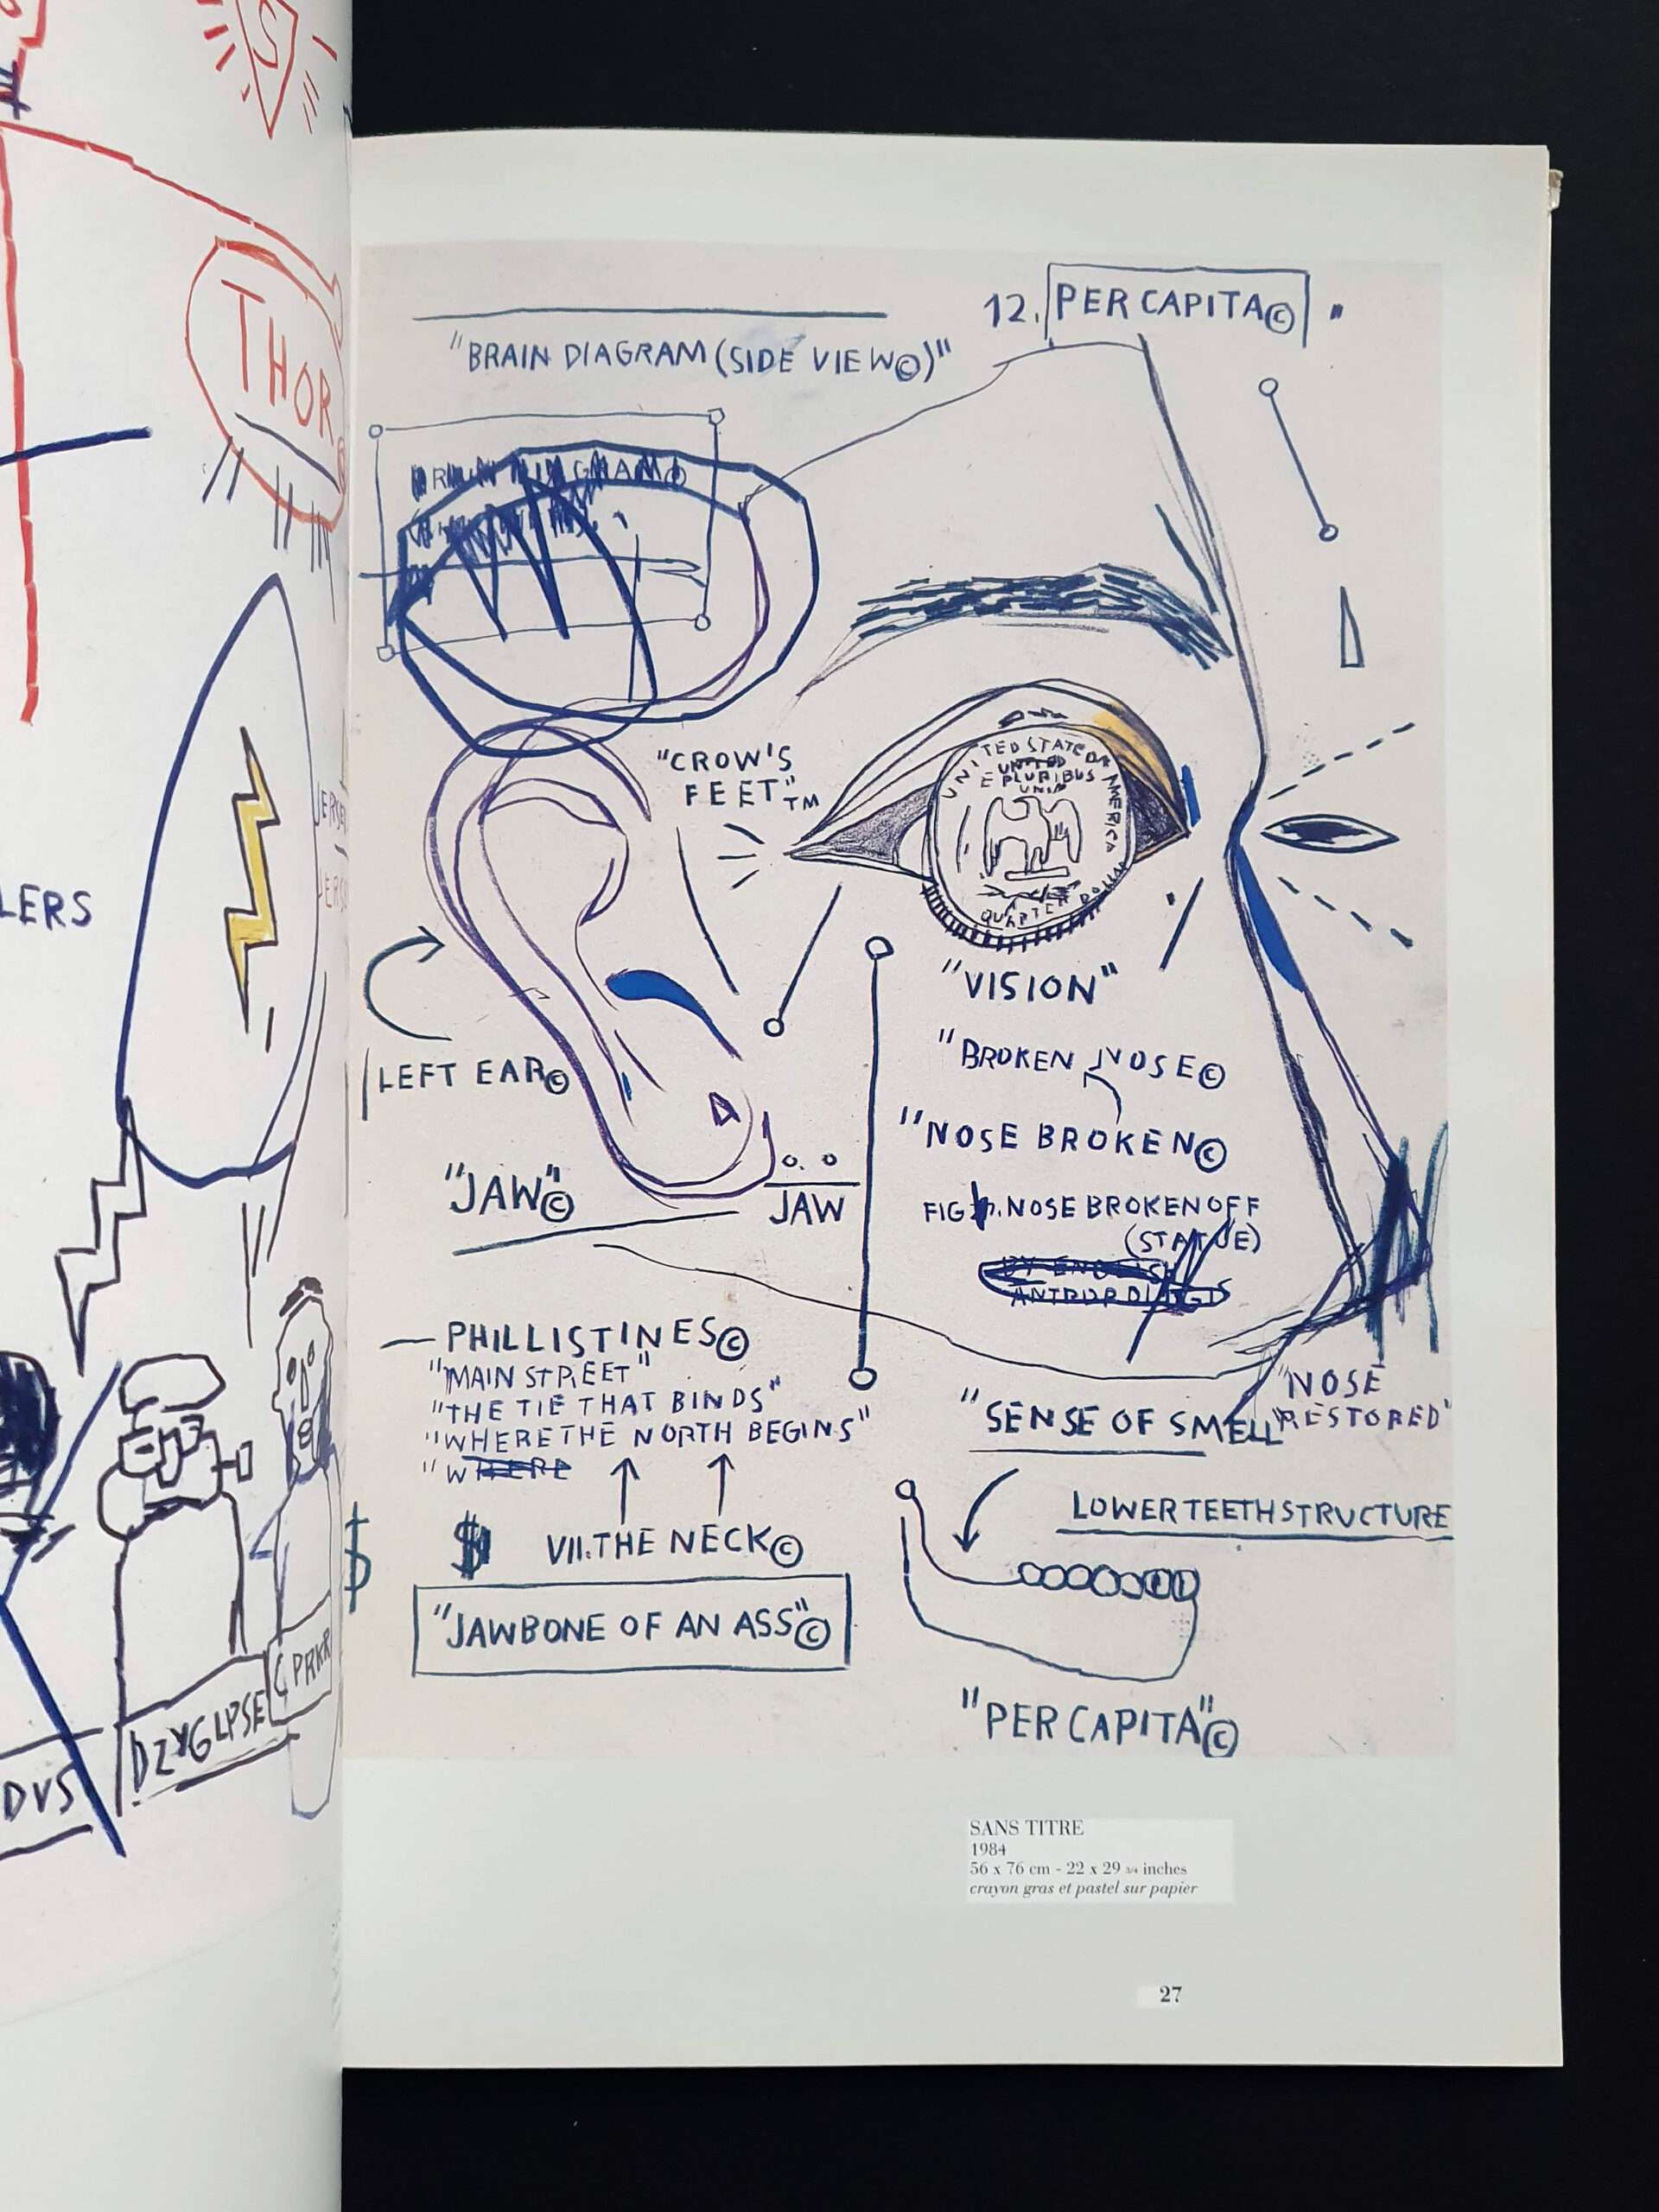 S
THOR
LERS
DVS
DZYGLPSE
C PRKR
$
12. PER CAPITA©
"BRAIN DIAGRAM (SIDE VIEW©)"
"CROW'S
FEET"TM
UNITED STATES OF AMERICA
E PLURIBUS
UNUM
QUARTER DOLLAR
"VISION"
"BROKEN NOSE©
LEFT EAR©
"NOSE BROKEN©
"JAW"©
JAW
FIG. NOSE BROKEN OFF
(STATUE)
— PHILLISTINES©
"MAIN STREET"
"THE TIE THAT BINDS"
"WHERE THE NORTH BEGINS"
"WHERE
"NOSE
RESTORED"
"SENSE OF SMELL"
LOWER TEETH STRUCTURE
$ VII. THE NECK©
"JAWBONE OF AN ASS"©
"PER CAPITA"©
SANS TITRE
1984
56 x 76 cm - 22 x 29 3/4 inches
crayon gras et pastel sur papier
27